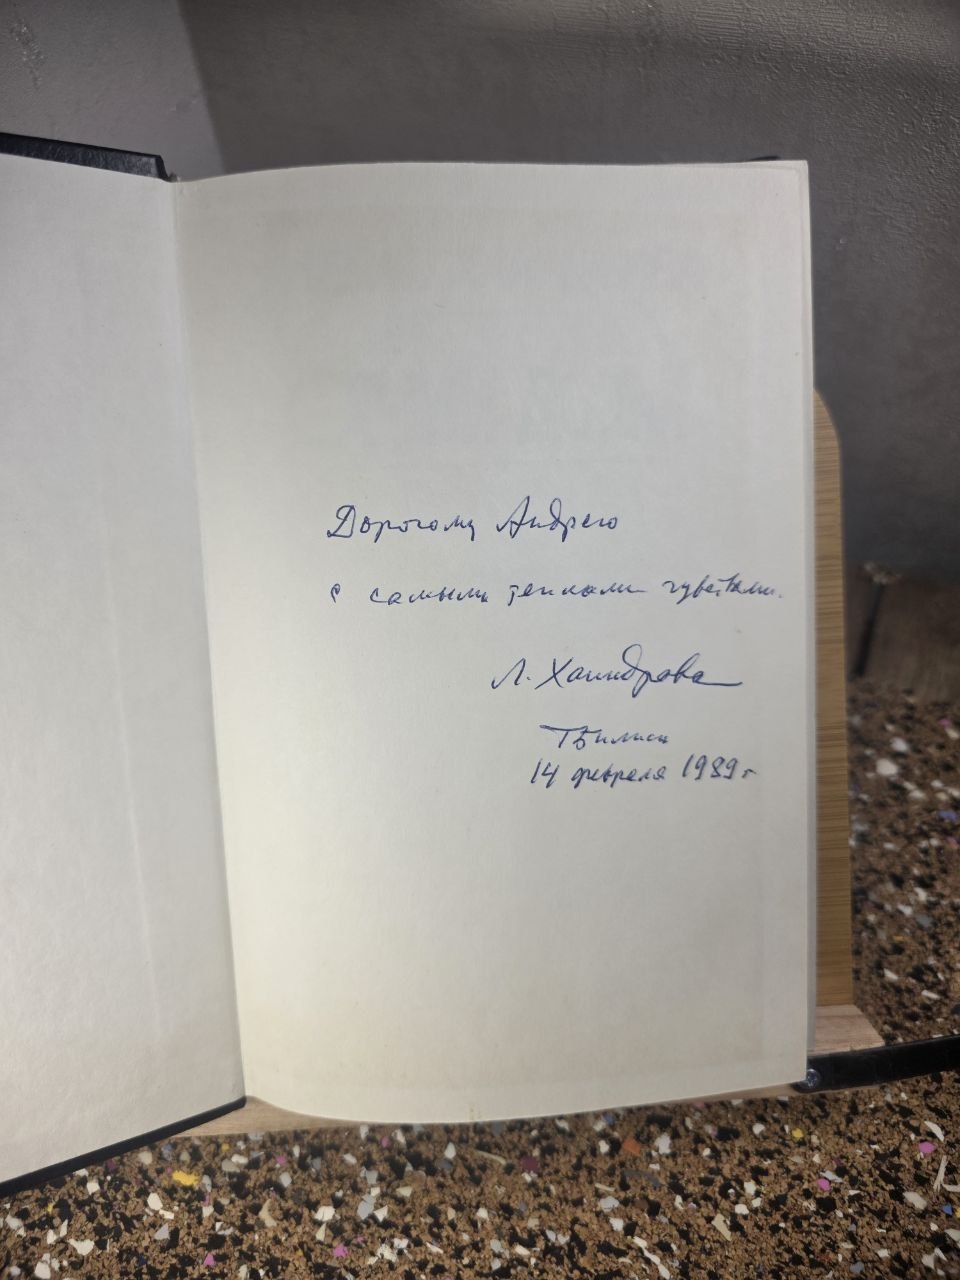 Дорогому Андрею
с самыми теплыми чувствами.
Л. Хаиндрава
Тбилиси
14 февраля 1989 г